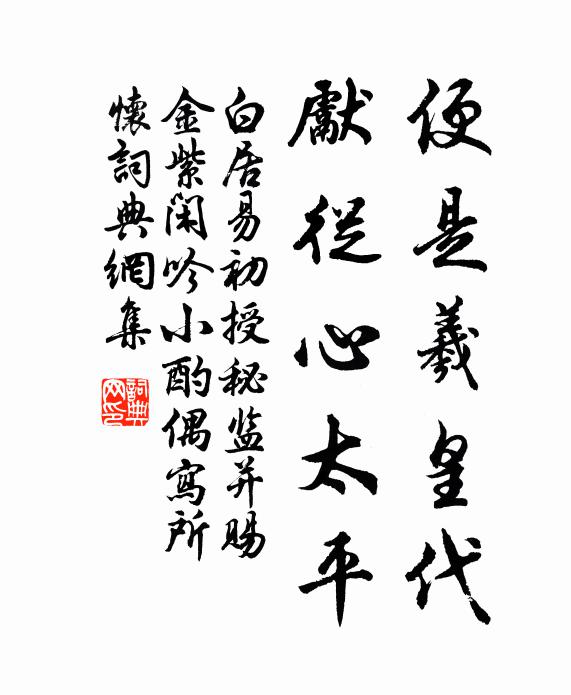 便是羲皇代
獻從心太平
白居易初授秘监并賜
金紫閑吟小酌偶寫所
懷詞典網集
詞典
网印